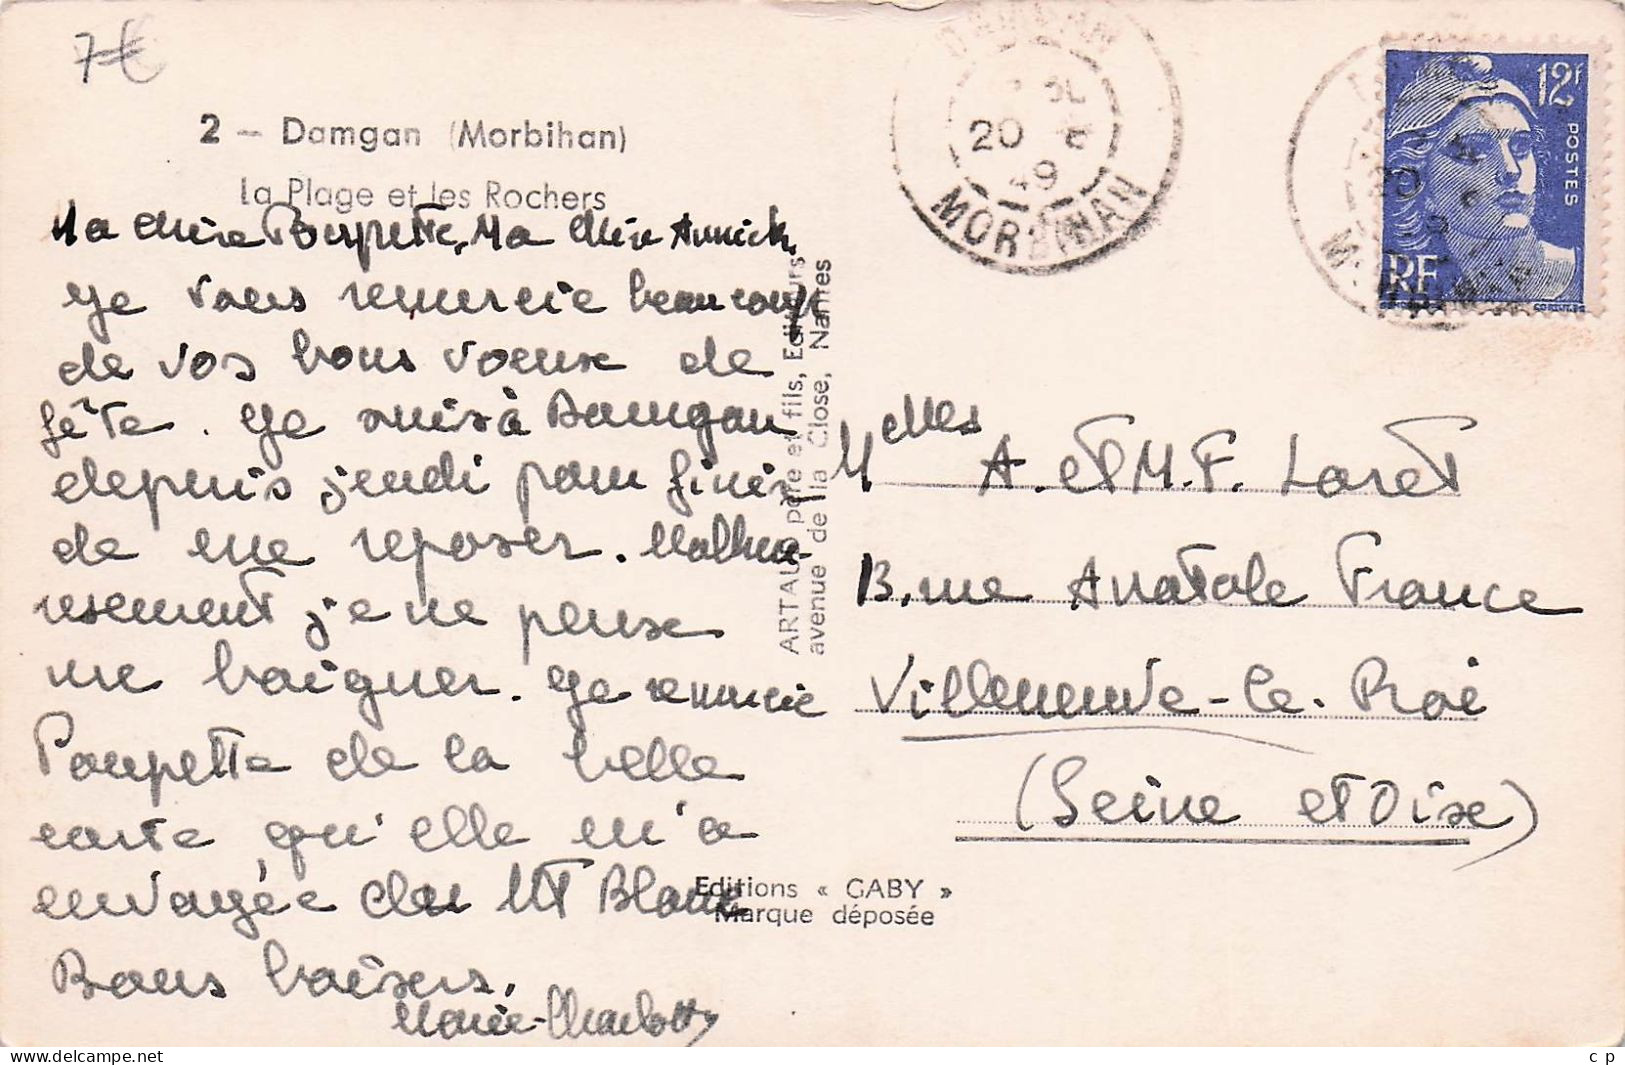 7€
2 — Damgan (Morbihan)
La Plage et les Rochers
Ma chère Poupette, Ma chère Annick,
Je vous remercie beaucoup
de vos bons voeux de
fête. Je suis à Damgan
depuis jeudi pour finir
de me reposer. Malheu-
resement je ne peux
me baigner. Je remercie
Poupette de la belle
carte qu'elle m'a
envoyée du Mt Blanc
Bons baisers.
Marie-Charlotte
ARTAUD père et fils, Editeurs
avenue de la Close, Nantes
Editions « GABY »
Marque déposée
DAMGAN
20
49
MORBIHAN
12f
POSTES
RF
Melles A. et M.F. Loret
13, rue Anatole France
Villeneuve-le-Roi
(Seine et Oise)
c p
www.delcampe.net